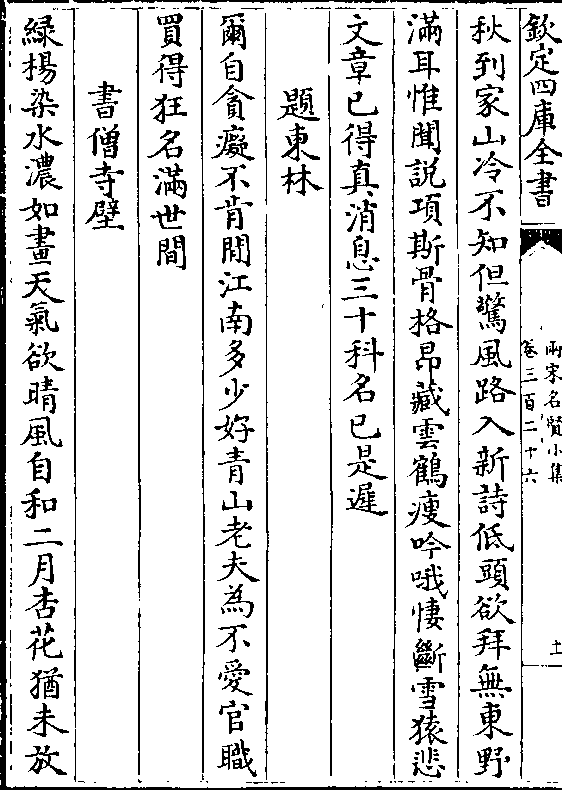 欽定四庫全書
兩宋名賢小集
卷三百二十六
十
秋到家山冷不知但驚風路入新詩低頭欲拜無東野
滿耳惟聞説項斯骨格昂藏雲鶴瘦吟哦悽斷雪猿悲
文章已得真消息三十科名已是遲
題東林
爾自貪癡不肯閒江南多少好青山老夫為不愛官職
買得狂名滿世間
書僧寺壁
緑楊染水濃如畫天氣欲晴風自和二月杏花猶未放